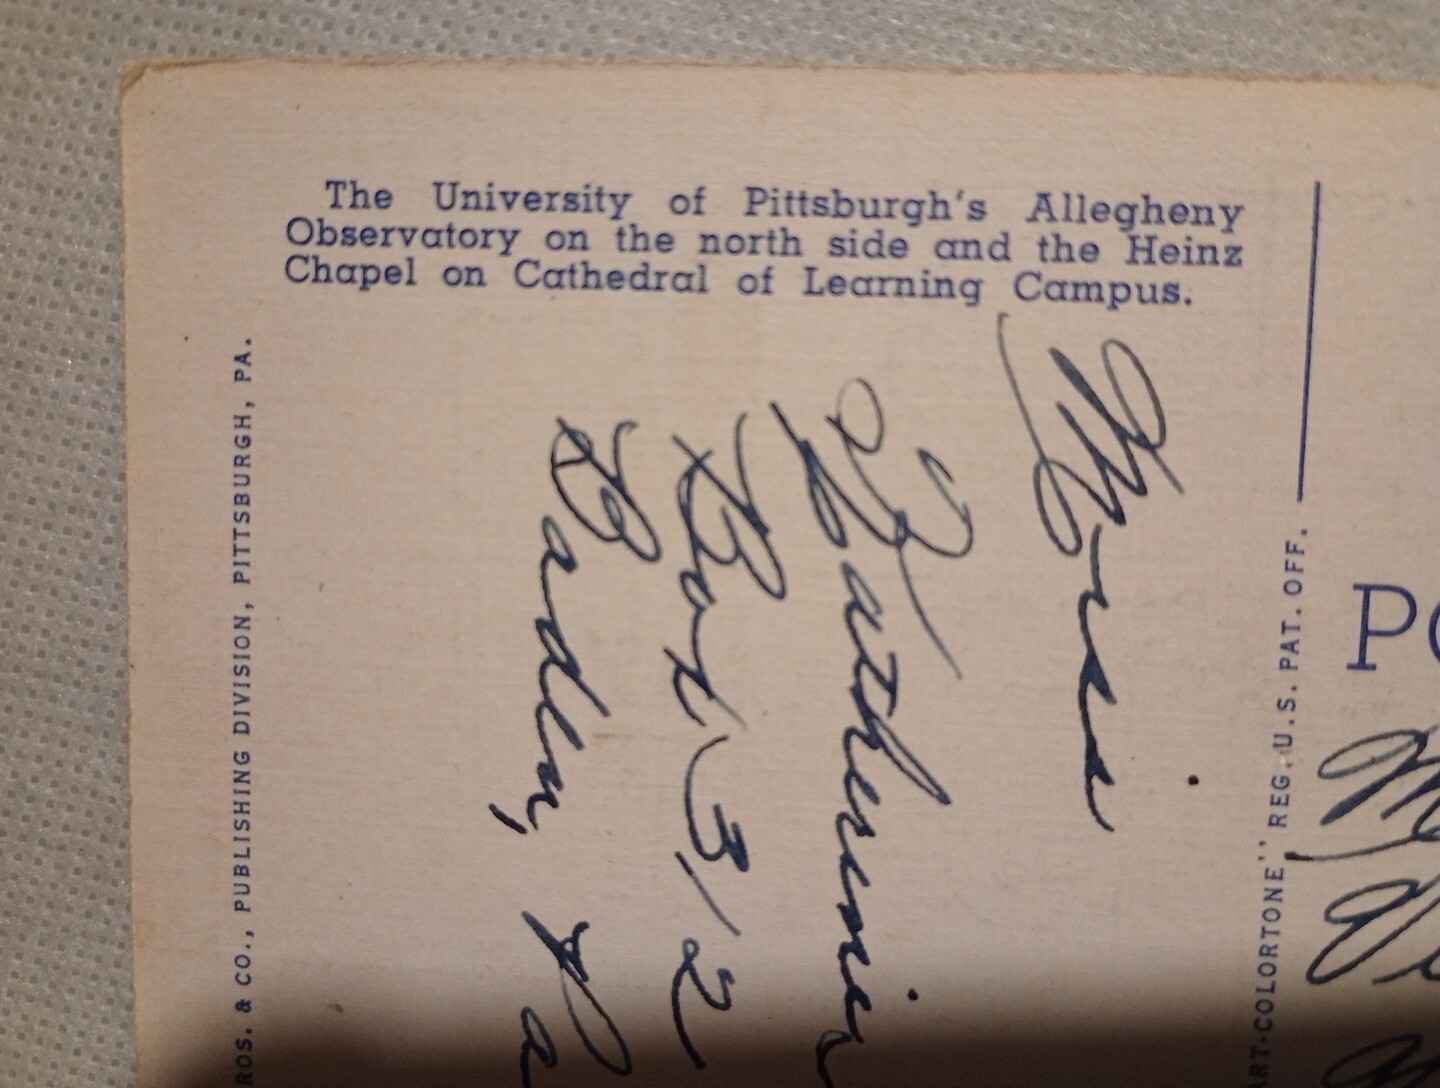 The University of Pittsburgh's Allegheny
Observatory on the north side and the Heinz
Chapel on Cathedral of Learning Campus.
ROS. & CO., PUBLISHING DIVISION, PITTSBURGH, PA.
ART-COLORTONE" REG. U.S. PAT. OFF.
PO
Box 312
Baden, Pa